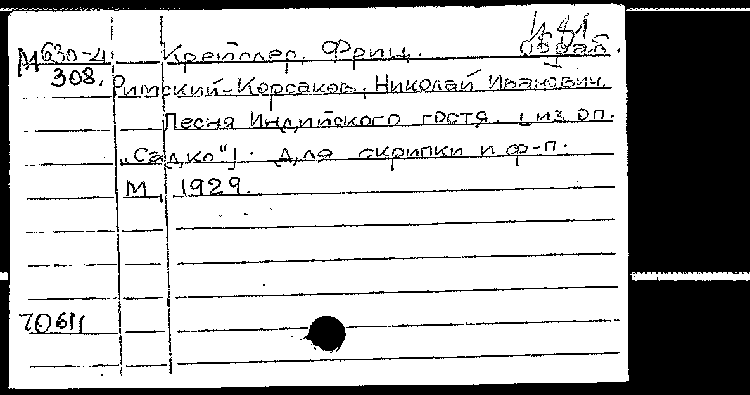 481
М630-4 Крейслер, Фриц. обраб.
308. Римский-Корсаков, Николай Иванович.
Песня Индийского гостя. [из оп.
„Садко"]. Для скрипки и ф-п.
М. 1929.
70611